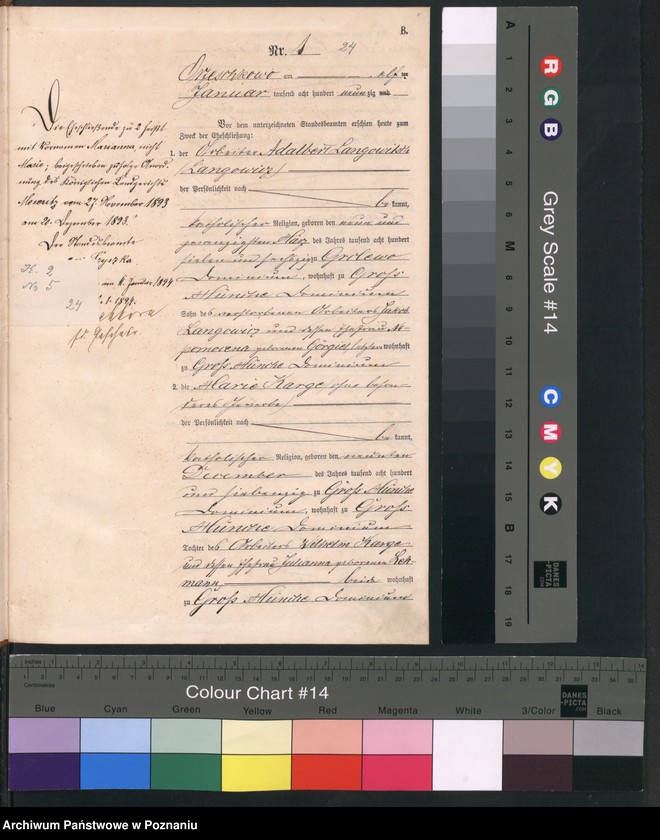 B.
Nr. 1 24
Orzeschkowo am elf ten
Januar tausend acht hundert neunzig und
Vor dem unterzeichneten Standesbeamten erschien heute zum
Zweck der Eheschließung:
1. der Arbeiter Adalbert Langowitsch
(Langowicz)
der Persönlichkeit nach
be kannt,
katholischer Religion, geboren den neun und
zwanzigsten März des Jahres tausend acht hundert
sieben und sechzig zu Grolewo
Dominium, wohnhaft zu Gross
Münche Dominium
Sohn des verstorbenen Arbeiters Jakob
Langowicz und dessen Ehefrau Ne-
pomocena geborenen wohnhaft
zu Gross Münche Dominium
2. die Marie Karge ohne beson-
deres Gewerbe
der Persönlichkeit nach
be kannt,
katholischer Religion, geboren den neunten
December des Jahres tausend acht hundert
und siebenzig zu Gross Münche
Dominium, wohnhaft zu Gross
Münche Dominium
Tochter des Arbeiters Wilhelm Karge
und dessen Ehefrau Julianna geborenen Leh-
mann, beide wohnhaft
zu Gross Münche Dominium
Die Eheschließende zu 2 heißt
mit Vornamen Marianna, nicht
Marie; beigeschrieben zufolge Anord-
nung des Königlichen Landgerichts
Meseritz vom 27. November 1893
am 20. Dezember 1893.
Der Standesbeamte
No 5
am 4. Januar 1894
24
Grey Scale #14
R
G
B
C
M
Y
K
A 1 2 3 4 5 6 M 8 9 10 11 12 13 14 15 B 17 18 19
DANES
-PICTA
.COM
Inches
Centimetres
Colour Chart #14
DANES
-PICTA
.COM
Blue Cyan Green Yellow Red Magenta White 3/Color Black
Archiwum Państwowe w Poznaniu